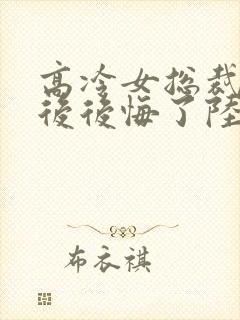 高冷女总裁
後後悔了陸
布衣祺